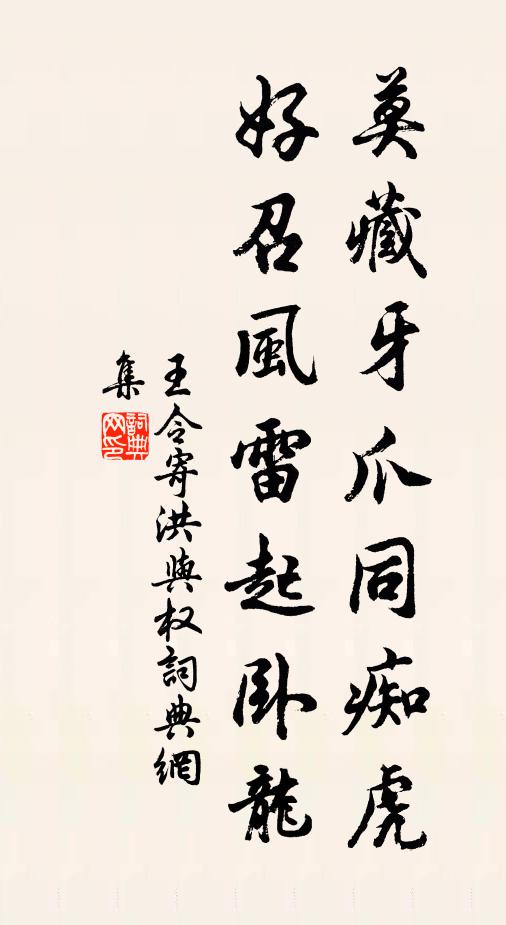 莫藏牙爪同痴虎
好召風雷起卧龍
王令寄洪與权詞典網
集
詞典
网印